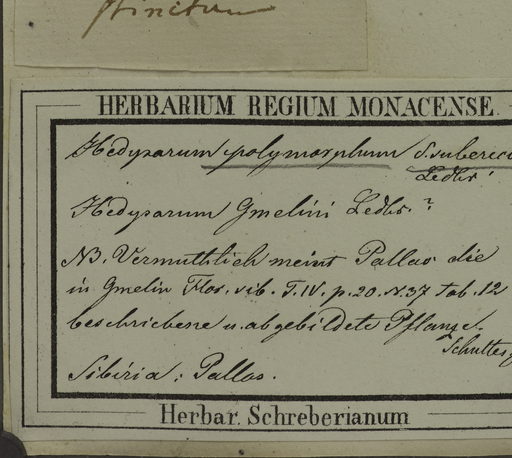 HERBARIUM REGIUM MONACENSE
Hedysarum polymorphum δ. suberec
Ledbr.
Hedysarum Gmelini Ledbr.?
NB. Vermuthlich meint Pallas die
in Gmelin Flor. sib. T. IV. p. 20. N. 37 tab. 12
beschriebene u. abgebildete Pflanze.
Schultes
Sibiria: Pallas.
Herbar. Schreberianum